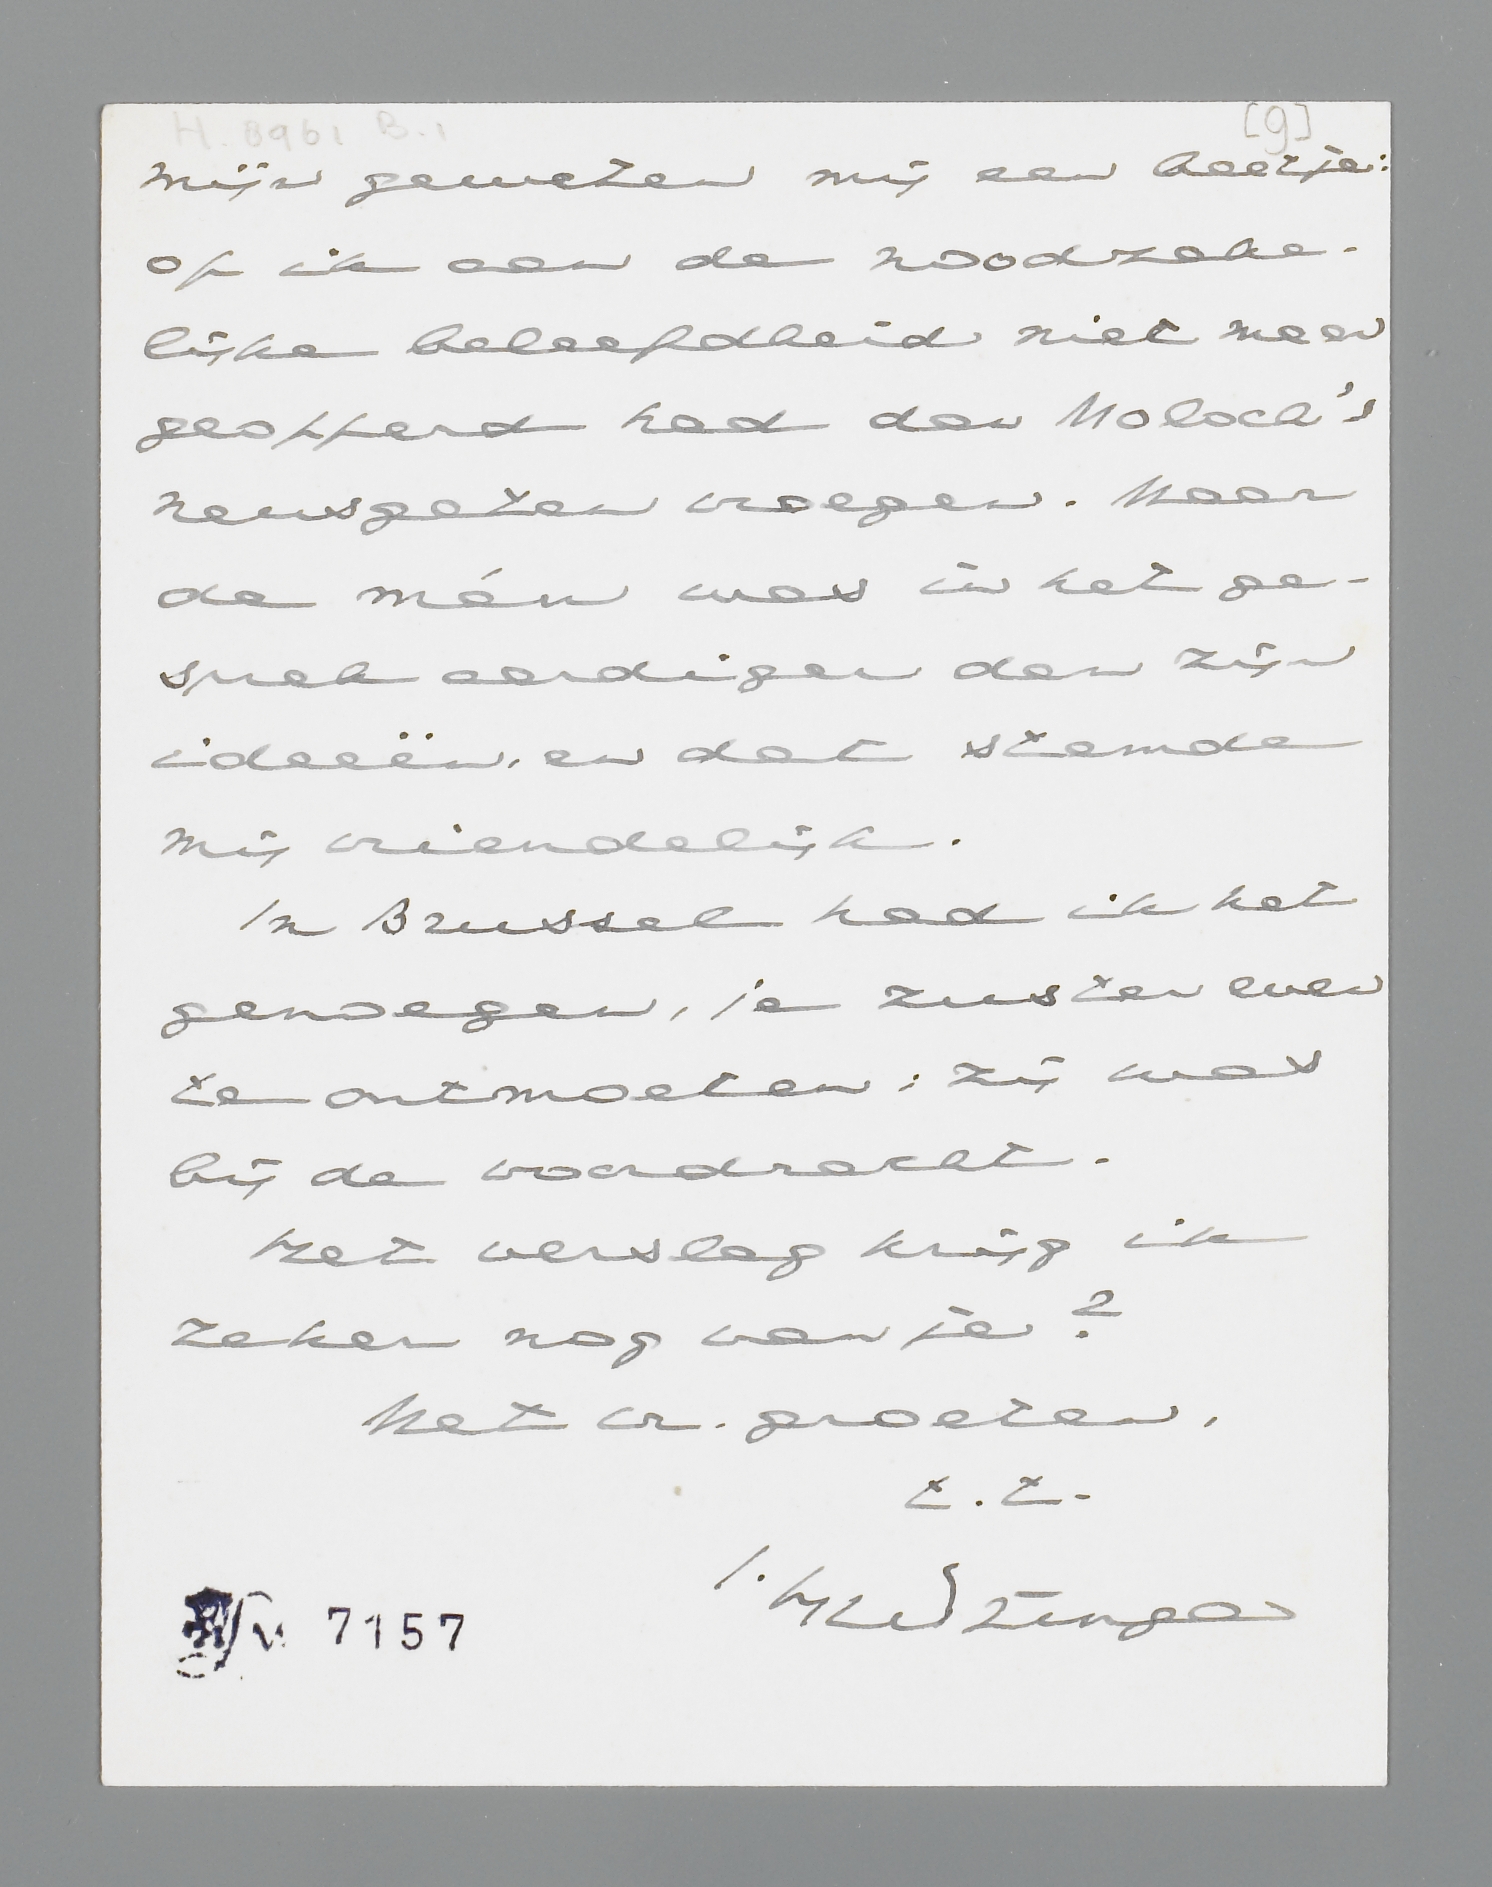 H. 8961 B.1
[9]
mijn geweten mij een beetje:
of ik aan de noodzake-
lijke beleefdheid niet meer
geofferd had dan Moloch's
neusgaten vroegen. Maar
de mán was in het ge-
sprek aardiger dan zijn
ideeën, en dat stemde
mij vriendelijk.
In Brussel had ik het
genoegen, je zuster even
te ontmoeten: zij was
bij de voordracht.
Het verslag krijg ik
zeker nog van je?
Met vr. groeten,
t.t.
J. Huizinga
7157